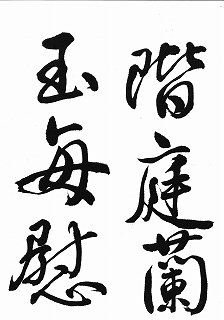 階庭蘭
玉每慰